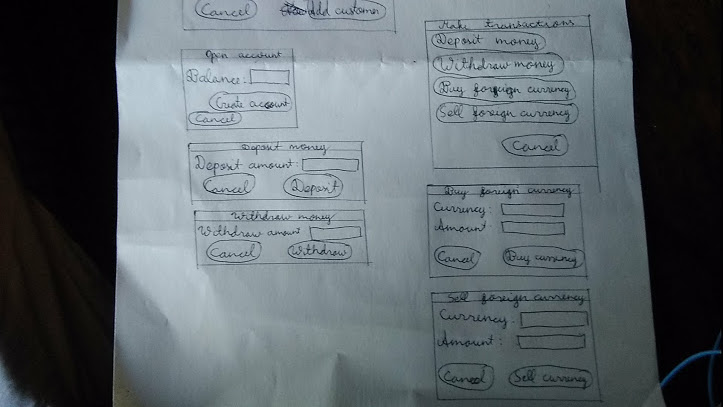 Cancel
add customer
Open account
Balance:
Create account
Cancel
Deposit money
Deposit amount:
Cancel Deposit
Withdraw money
Withdraw amount
Cancel Withdraw
Make transactions
Deposit money
Withdraw money
Buy foreign currency
Sell foreign currency
Cancel
Buy foreign currency
Currency:
Amount:
Cancel Buy currency
Sell foreign currency
Currency:
Amount:
Cancel Sell currency